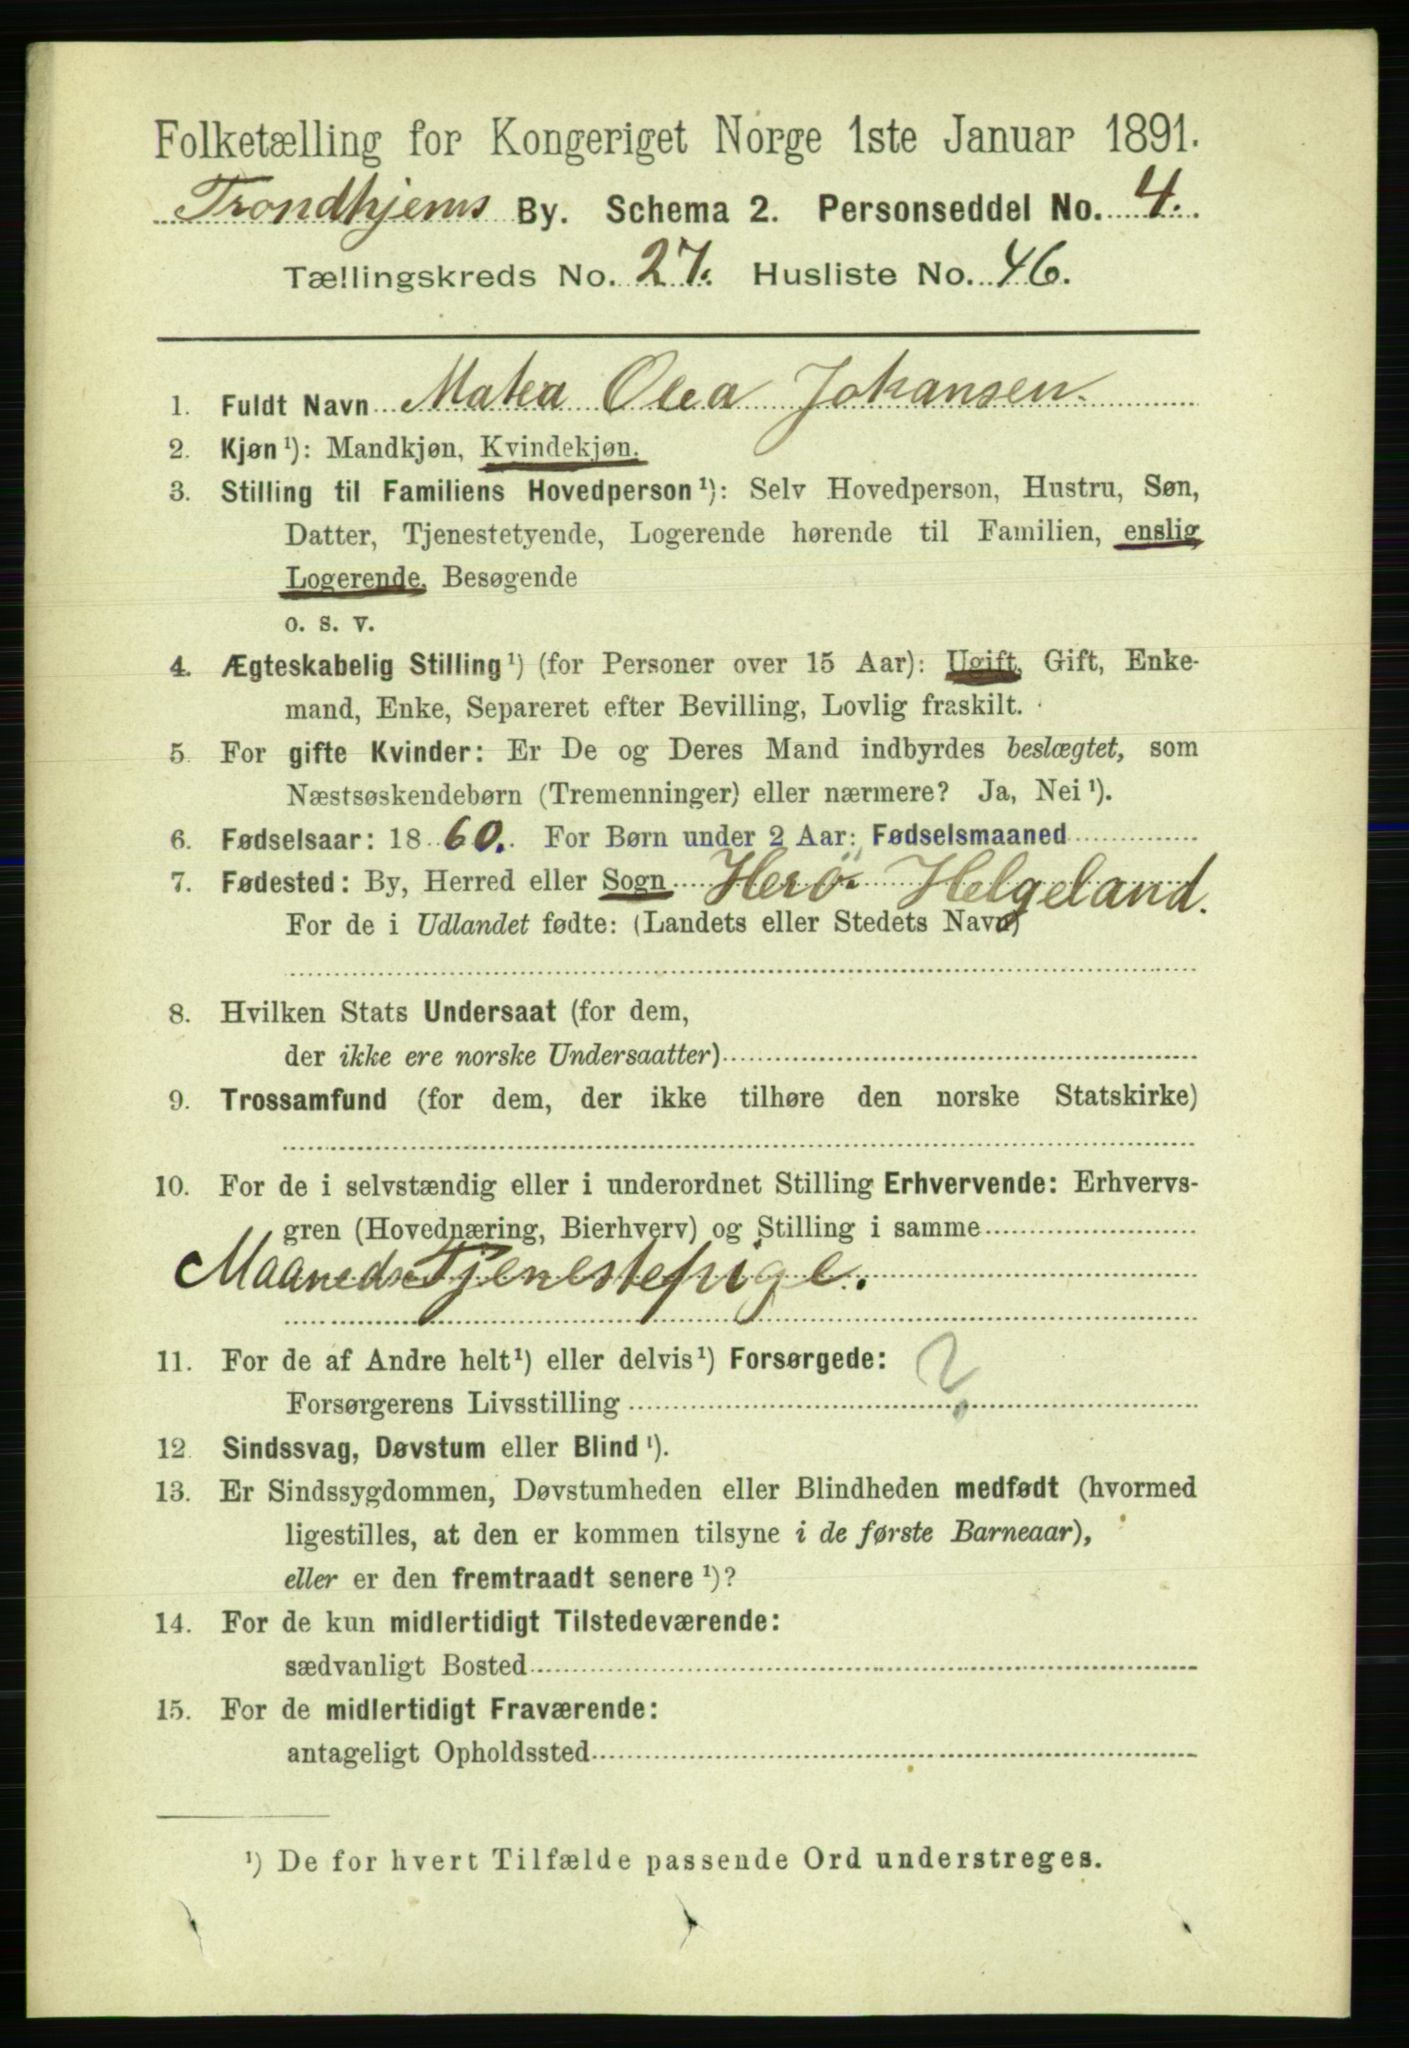 Folketælling for Kongeriget Norge 1ste Januar 1891.
Trondhjems By. Schema 2. Personseddel No. 4.
Tællingskreds No. 27. Husliste No. 46.
1. Fuldt Navn Matea Olea Johansen.
2. Kjøn ¹): Mandkjøn, Kvindekjøn.
3. Stilling til Familiens Hovedperson ¹): Selv Hovedperson, Hustru, Søn,
Datter, Tjenestetyende, Logerende hørende til Familien, enslig
Logerende, Besøgende
o. s. v.
4. Ægteskabelig Stilling ¹) (for Personer over 15 Aar): Ugift, Gift, Enke-
mand, Enke, Separeret efter Bevilling, Lovlig fraskilt.
5 For gifte Kvinder: Er De og Deres Mand indbyrdes beslægtet, som
Næstsøskendebørn (Tremenninger) eller nærmere? Ja, Nei ¹).
6. Fødselsaar: 18 60. For Børn under 2 Aar: Fødselsmaaned
7. Fødested: By, Herred eller Sogn Herö Helgeland.
For de i Udlandet fødte: (Landets eller Stedets Navn)
8. Hvilken Stats Undersaat (for dem,
der ikke ere norske Undersaatter)
9. Trossamfund (for dem, der ikke tilhøre den norske Statskirke)
10. For de i selvstændig eller i underordnet Stilling Erhvervende: Erhvervs-
gren (Hovednæring, Bierhverv) og Stilling i samme
Maaneds Tjenestepige.
11. For de af Andre helt ¹) eller delvis ¹) Forsørgede: ?
Forsørgerens Livsstilling
12. Sindssvag, Døvstum eller Blind ¹).
13. Er Sindssygdommen, Døvstumheden eller Blindheden medfødt (hvormed
ligestilles, at den er kommen tilsyne i de første Barneaar),
eller er den fremtraadt senere ¹)?
14. For de kun midlertidigt Tilstedeværende:
sædvanligt Bosted
15. For de midlertidigt Fraværende:
antageligt Opholdssted
¹) De for hvert Tilfælde passende Ord understreges.